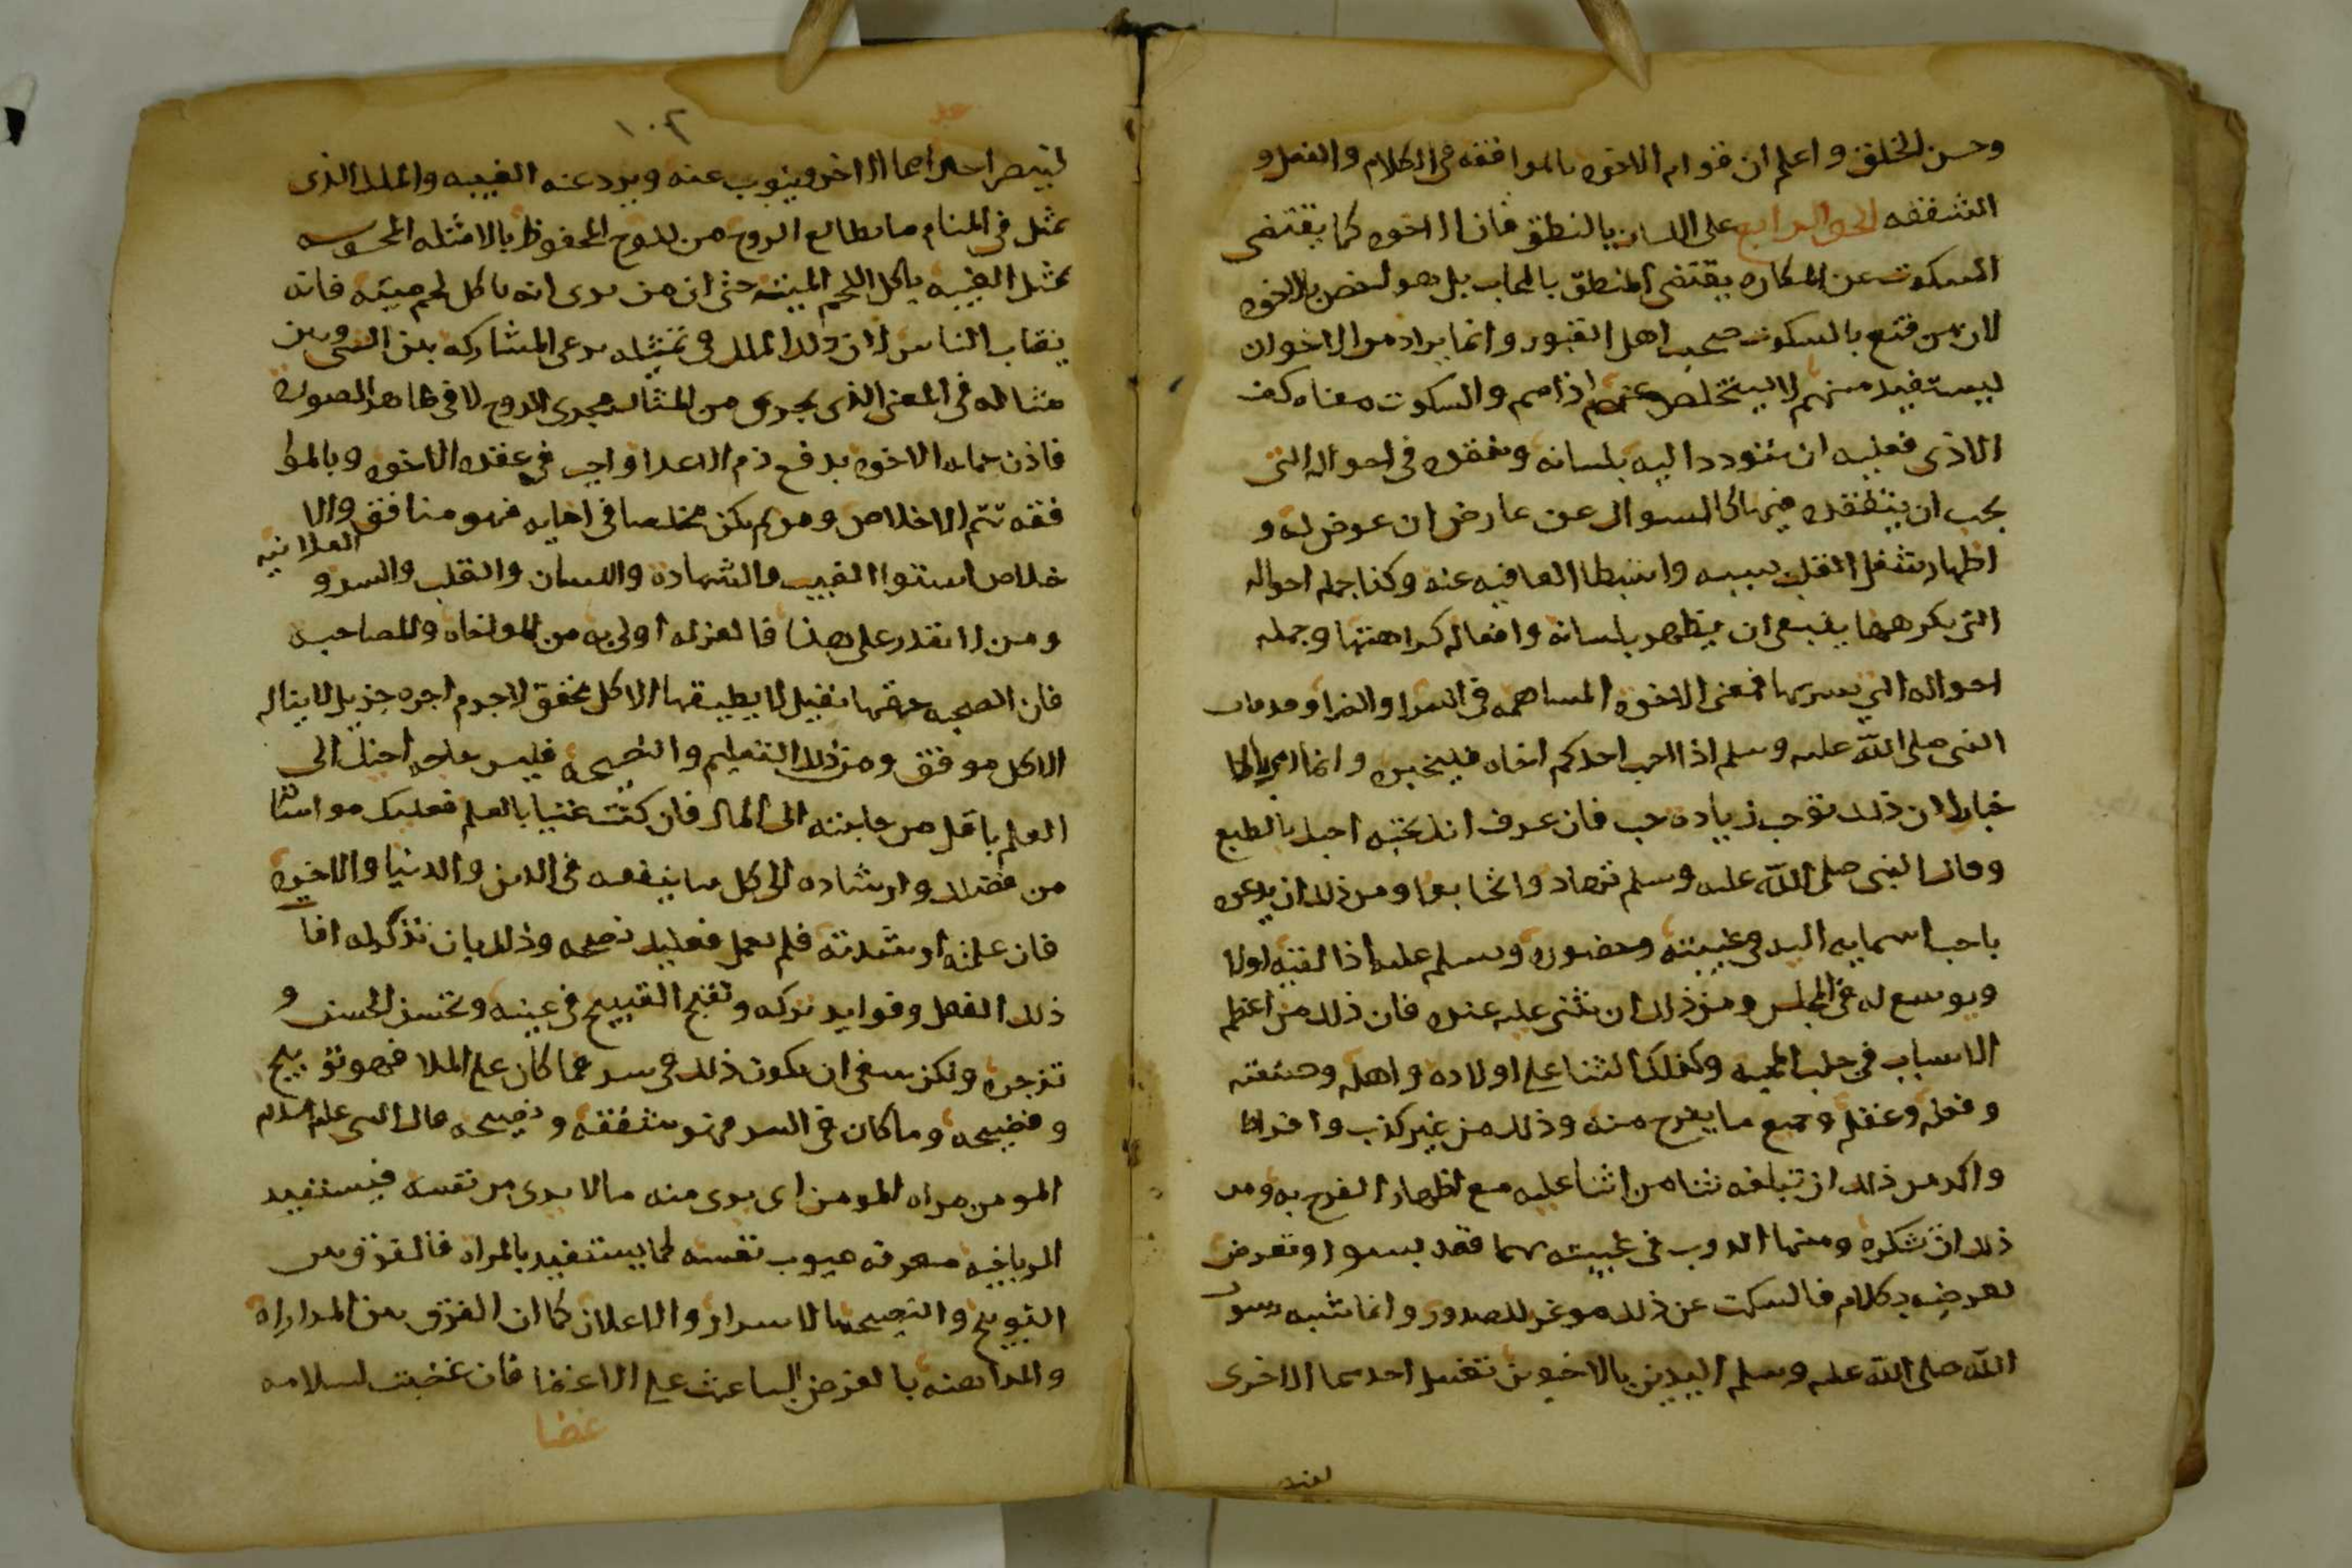 وحسن الخلق واعلم ان قوام الاخوه بالموافقه في الكلام والفعل و
الشفقه الحق الرابع على اللسان بالنطق فان الاخوه كما يقتضى
السكوت عن المكاره يقتضى المنطق بالمحاب بل هو اخص بالاخوه
لان من قنع بالسكوت صحب اهل القبور وانما يراد من الاخوان
ليستفيد منهم لا ليتخلص عنهم اذاهم والسكوت معناه كف
الاذى فعليه ان يتودد اليه بلسانه ويتفقده في احواله التى
يجب ان يتفقده فيها كالسوال عن عارض ان عرض له و
اظهار شغل القلب بسببه واستبطا العافيه عنه وكذا جمله احواله
التى يكرهها ينبغى ان يظهر بلسانه وافعاله كراهتها وجمله
احواله التي يسر بها فمعنى الاخوه المساهمه في السرا والضرا وقد قال
النبى صلى الله عليه وسلم اذا احب احدكم اخاه فليخبره وانما امر بالا
خبار لان ذلك يوجب زيادة حب فان عرف انك تحبه احبك بالطبع
وقال النبى صلى الله عليه وسلم تهادوا تحابوا ومن ذلك ان يدعوه
باحب اسمايه اليه في غيبته وحضوره ويسلم عليه اذا لقيه اولا
ويوسع له في المجلس ومن ذلك ان تثنى عليه عنده فان ذلك من اعظم
الاسباب في جلب المحبه وكذلك الثنا على اولاده واهله وصنعته
وفعله وعقله وجميع ما يفرح منه وذلك من غير كذب وافراط
واكد من ذلك ان تبلغه ثنا من اثنا عليه مع اظهار الفرح به ومن
ذلك ان تشكره ومنها الذب في غيبته مهما قصد بسوء او تعرض
لعرضه بكلام فالسكت عن ذلك موغر للصدور وانما شبه رسول
الله صلى الله عليه وسلم اليدين بالاخوين تغسل احدهما الاخرى
لينصر
١٠٢
لينصر احدهما الاخر وينوب عنه ويرد عنه الغيبه والملك الذى
يمثل في المنام ما يطالع الروح من اللوح المحفوظ بالامثله المحسوسه
يمثل الغيبه باكل اللحم الميته حتى ان من يرى انه ياكل لحم ميته فانه
يغتاب الناس لان ذلك الملك في تمثيله يرعى المشاركه بين الشى وبين
مثاله في المعنى الذى يجرى من المثال مجرى الروح لا في ظاهر الصوره
فاذن حمايه الاخوه بدفع ذم الاعدا واجب في عقد الاخوه وبالموا
فقه تتم الاخلاص ومن لم يكن مخلصا في اخايه فهو منافق والا
خلاص استوا الغيب والشهادة واللسان والقلب والسر و العلانيه
ومن لا يقدر على هذا فالعزله اولى به من المواخاه والمصاحبه
فان الصحبه حقها ثقيل لا يطيقها الا كل محقق لاجرم اجره جزيل لا يناله
الا كل موفق ومن ذلك التعليم والنصيحه فليس حاجه اخيك الى
العلم باقل من حاجته الى المال فان كنت غنيا بالعلم فعليك مواساته
من فضلك وارشاده الى كل ما ينفعه في الدين والدنيا والاخره
فان علمته وارشدته فلم يعمل فعليك نصحه وذلك بان تذكر له افات
ذلك الفعل وفوايد تركه وتقبح القبيح في عينه وتحسن الحسن و
تزجره ولكن ينبغى ان يكون ذلك في سر فما كان على الملا فهو توبيخ
وفضيحه وما كان في السر فهو شفقه ونصيحه قال النبى عليه السلام
المومن مراه المومن اى يرى منه مالا يرى من نفسه فيستفيد
المر باخيه معرفه عيوب نفسه كما يستفيد بالمراه فالفرق بين
التوبيخ والنصيحه بالاسرار والاعلان كما ان الفرق بين المداراه
والمداهنه بالغرض الباعث على الاغضا فان غضيت لسلامه